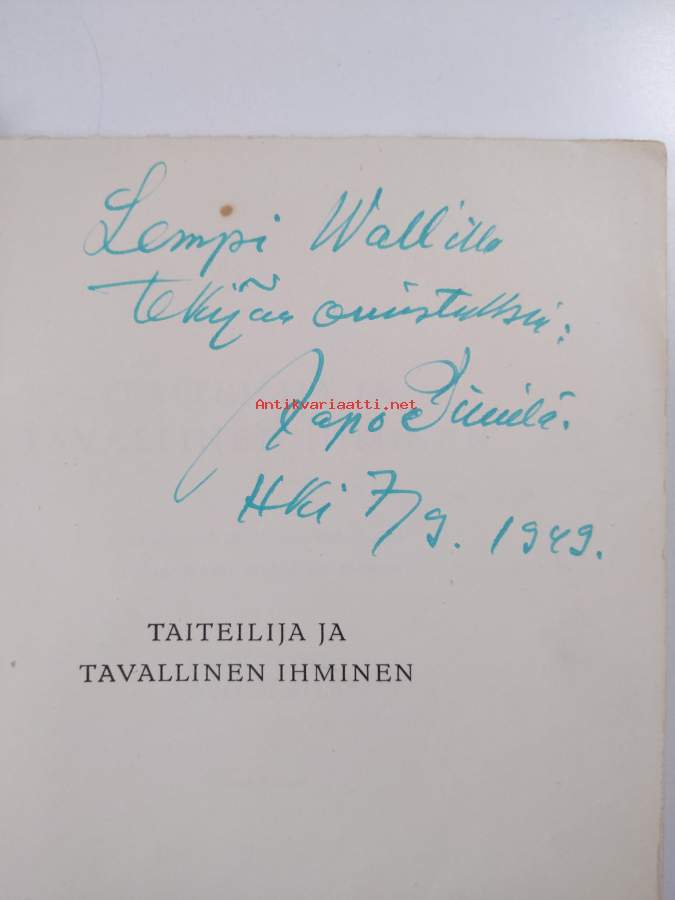 Lempi Wallille
tekijän omistuksin:
Aapo Similä.
Hki 7/9. 1949.
Antikvariaatti.net
TAITEILIJA JA
TAVALLINEN IHMINEN